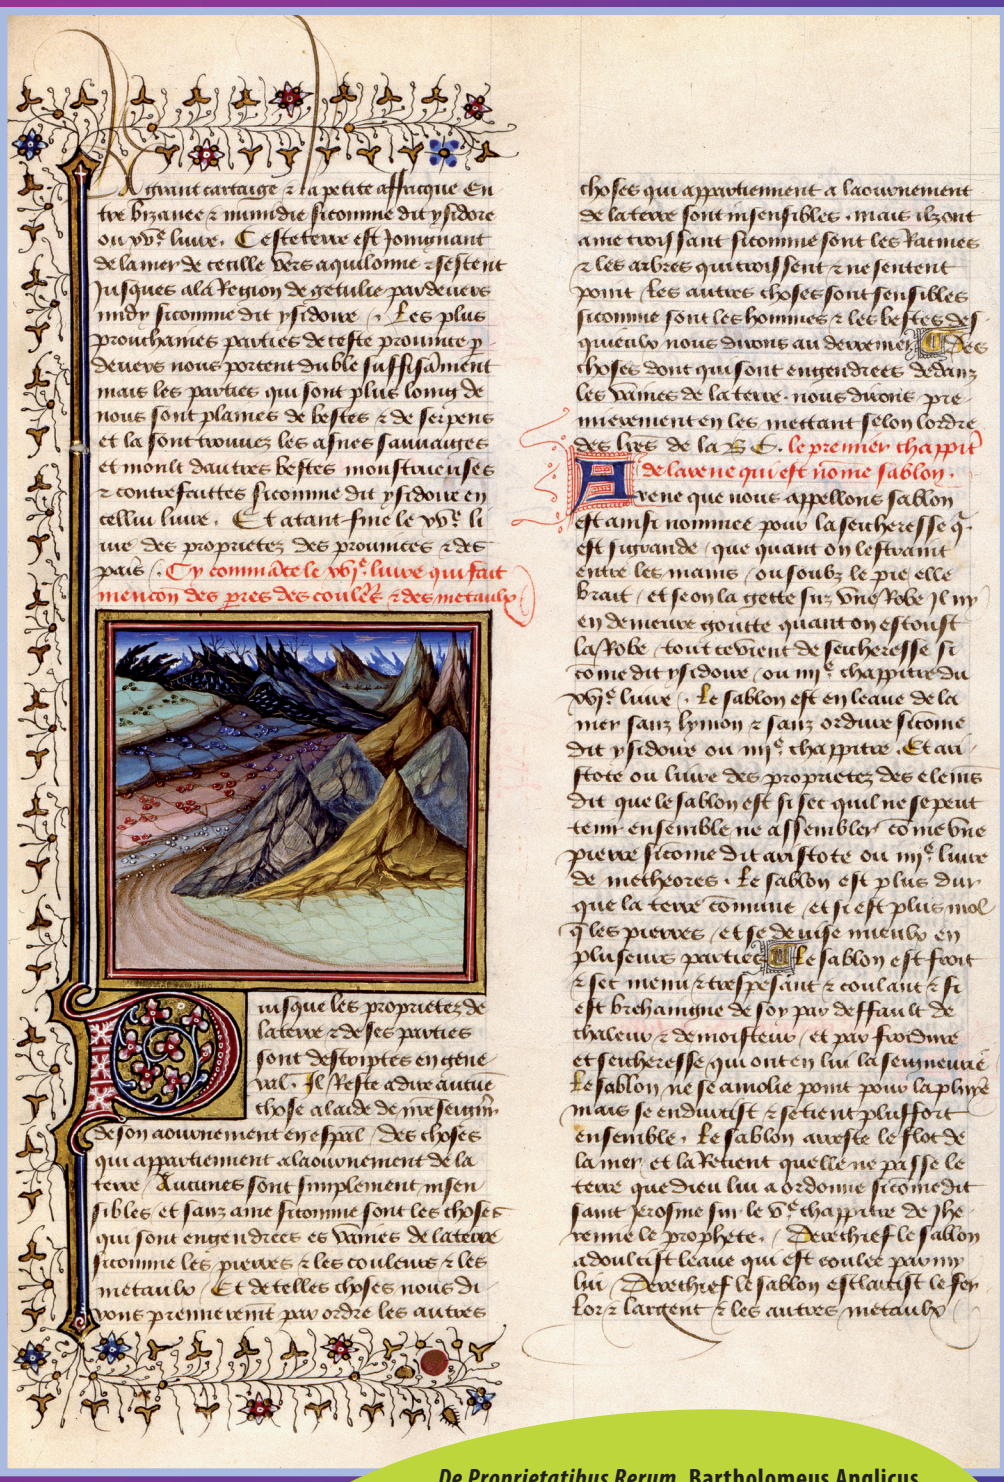 La grant cartaige & la petite affricque en
tre bizance & numidie sicomme dit ysidore
ou xvᵉ livre. Ceste terre est Joingnant
de la mer de cecille vers aquilonne & sestent
Jusques a la Region de getulie par devers
midy sicomme dit ysidore. Les plus
prouchaines parties de ceste province p
devers nous portent du ble suffisāment
mais les parties qui sont plus loing de
nous sont plaines de bestes & de serpens
et la sont trouvez les asnes sauvaiges
et moult dautres bestes monstrueuses
& contrefaittes sicomme dit ysidore en
cellui livre. Et atant fine le xvᵉ li
vre des proprietez des provinces & des
pais. Cy commāce le xviᵉ livre qui fait
mencon des pres des coulẽs & des metaulx
Puisque les proprietez de
la terre & de ses parties
sont descriptes en gene
ral. Il Reste a dire aucūe
chose a laide de nre seigñr
de son aournement en espāl des choses
qui appartiennent a laournement de la
terre Aucunes sont simplement insen
sibles et sanz ame sicomme sont les choses
qui sont engendrees es vaines de la terre
sicomme les pierres & les couleurs & les
metaulx. Et de telles choses nous di
rons premierement par ordre les autres
choses qui appartiennent a laournement
de la terre sont insensibles. mais ilz ont
ame croissant sicomme sont les Racines
& les arbres qui croissent & ne sentent
point Les autres choses sont sensibles
sicomme sont les hommes & les bestes des
quieulx nous dirons au derrenier Des
choses dont qui sont engendrees dedanz
les vaines de la terre. nous dirons pre
mierement en les mettant selon lordre
des lres de la B C. le premier chappitʳ
de larene qui est nōme sablon.
Arene que nous appellons sablon
est ainsi nommee pour la seicheresse q̄
est si grande que quant on lestraint
entre les mains ou soubz le pie elle
brait et se on la gette sur vne Robe Il ny
en demeure goutte quant on escoust
la Robe tout ce vient de seicheresse si
cōme dit ysidore ou iiiᵉ chappitre du
xviᵉ livre. Le sablon est en leaue de la
mer sanz lymon & sanz ordure sicōme
dit ysidore ou iiiᵉ chappitre. Et ari
stote ou livre des proprietez des elemēs
dit que le sablon est si sec quil ne se peut
tenir ensemble ne assembler cōme vne
pierre sicōme dit aristote ou iiiᵉ livre
de metheores. Le sablon est plus dur
que la terre cōmune et si est plus mol
q̄ les pierres et se devise mieulx en
pluseurs parties Le sablon est froit
& sec menu & trespesant & coulant & si
est brehaingne de soy par deffault de
chaleur & de moisteur et par froidure
et seicheresse qui ont en lui la seigneurie
Le sablon ne se amolie point pour la pluye
mais se endurcist & se tient plus fort
ensemble. Le sablon arreste le flot de
la mer et la Retient quelle ne passe le
terre que dieu lui a ordonne sicōme dit
saint Jerosme sur le vᵉ chappitre de Jhe
remie le prophete. Derechief le sablon
adoulcist leaue qui est coulee parmy
lui Derechief le sablon esclarcist le fer
Lor & largent & les autres metaulx
De Proprietatibus Rerum, Bartholomeus Anglicus